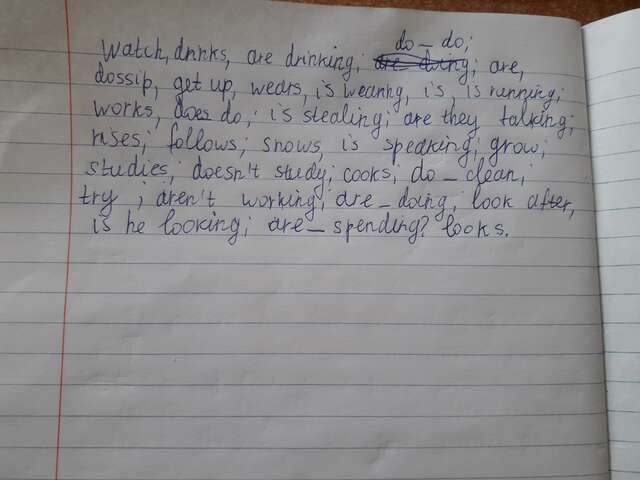 do – do;
Watch, drinks, are drinking; are doing; are,
dossip, get up, wears, is wearing, is, is running;
works, does do; is stealing; are they talking;
rises; follows; snows, is speaking; grow;
studies; doesn't study; cooks, do – clean,
try ; aren't working; are – doing, look after,
is he looking; are – spending? looks.